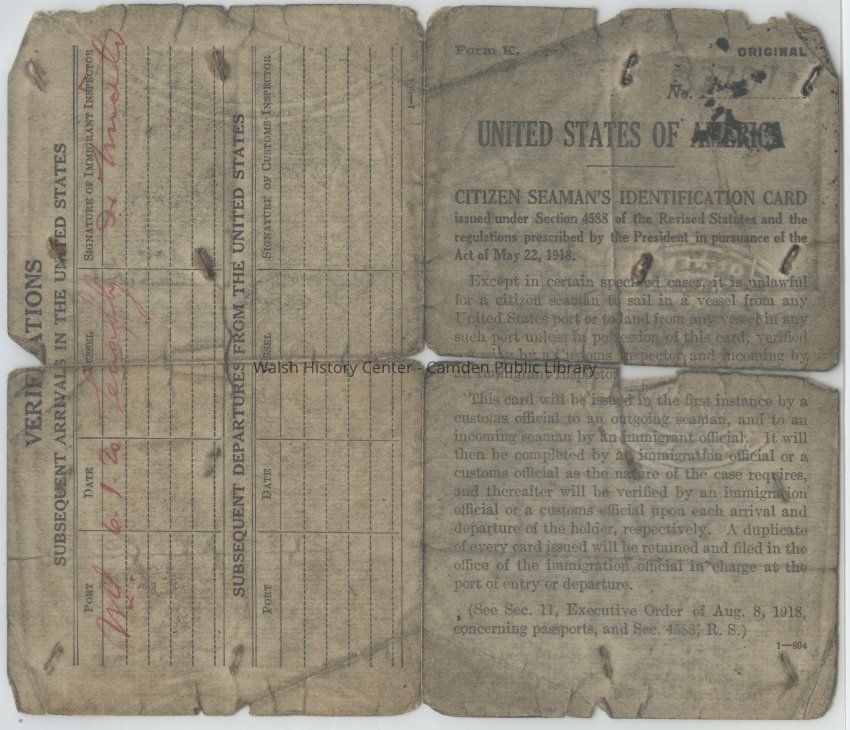 VERIFICATIONS
SUBSEQUENT ARRIVALS IN THE UNITED STATES
PORT DATE VESSEL SIGNATURE OF IMMIGRANT INSPECTOR
6.1.20
SUBSEQUENT DEPARTURES FROM THE UNITED STATES
PORT DATE VESSEL SIGNATURE OF CUSTOMS INSPECTOR
1—804
Form K. ORIGINAL
No.
UNITED STATES OF AMERICA
CITIZEN SEAMAN'S IDENTIFICATION CARD
issued under Section 4588 of the Revised Statutes and the
regulations prescribed by the President in pursuance of the
Act of May 22, 1918.
Except in certain specified cases, it is unlawful
for a citizen seaman to sail in a vessel from any
United States port or to land from any vessel in any
such port unless in possession of this card, verified
outgoing by a Customs Inspector and incoming by
an Immigrant Inspector
This card will be issued in the first instance by a
customs official to an outgoing seaman, and to an
incoming seaman by an immigrant official. It will
then be completed by an immigration official or a
customs official as the nature of the case requires,
and thereafter will be verified by an immigration
official or a customs official upon each arrival and
departure of the holder, respectively. A duplicate
of every card issued will be retained and filed in the
office of the immigration official in charge at the
port of entry or departure.
(See Sec. 11, Executive Order of Aug. 8, 1918,
concerning passports, and Sec. 4588, R. S.)
1—804
Walsh History Center - Camden Public Library